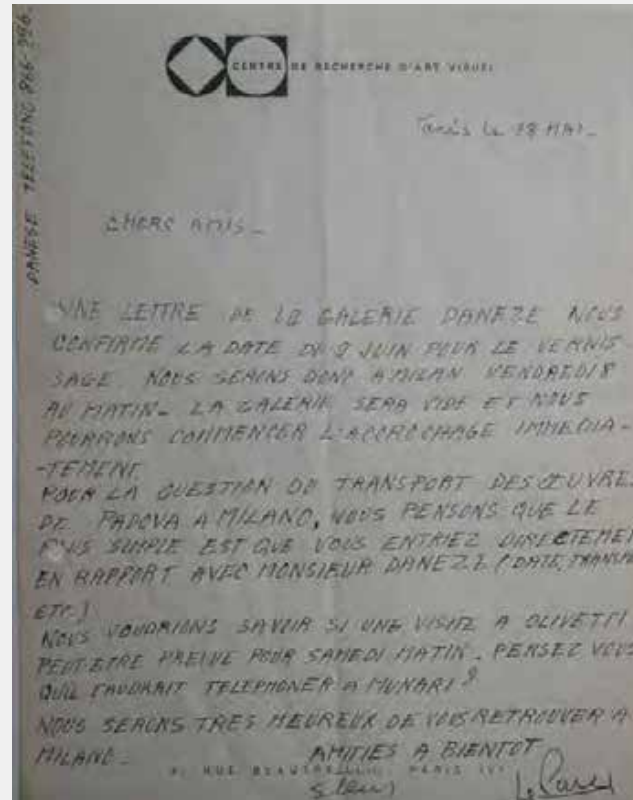 DANESE TELEFONO 866-296.
CENTRE DE RECHERCHE D'ART VISUEL
Paris le 28 MAI_
CHERS AMIS_
UNE LETTRE DE LA GALERIE DANEZE NOUS
CONFIRME LA DATE DU 9 JUIN POUR LE VERNIS-
SAGE. NOUS SERONS DONC A MILAN VENDREDI 8
AU MATIN_ LA GALERIE SERA VIDE ET NOUS
POURRONS COMMENCER L'ACCROCHAGE IMMEDIA-
-TEMENT.
POUR LA QUESTION DU TRANSPORT DES ŒUVRES
DE PADOVA A MILANO, NOUS PENSONS QUE LE
PLUS SIMPLE EST QUE VOUS ENTRIEZ DIRECTEMENT
EN RAPPORT AVEC MONSIEUR DANEZE (DATE,
ETC.)
NOUS VOUDRIONS SAVOIR SI UNE VISITE A OLIVETTI
PEUT-ETRE PREVUE POUR SAMEDI MATIN. PENSEZ VOUS
QU'IL FAUDRAIT TELEPHONER A MUNARI?
NOUS SERONS TRES HEUREUX DE VOUS RETROUVER A
MILANO_
AMITIES A BIENTOT
9, RUE BEAUTREILLIS, PARIS IV
Stein
Le Parc